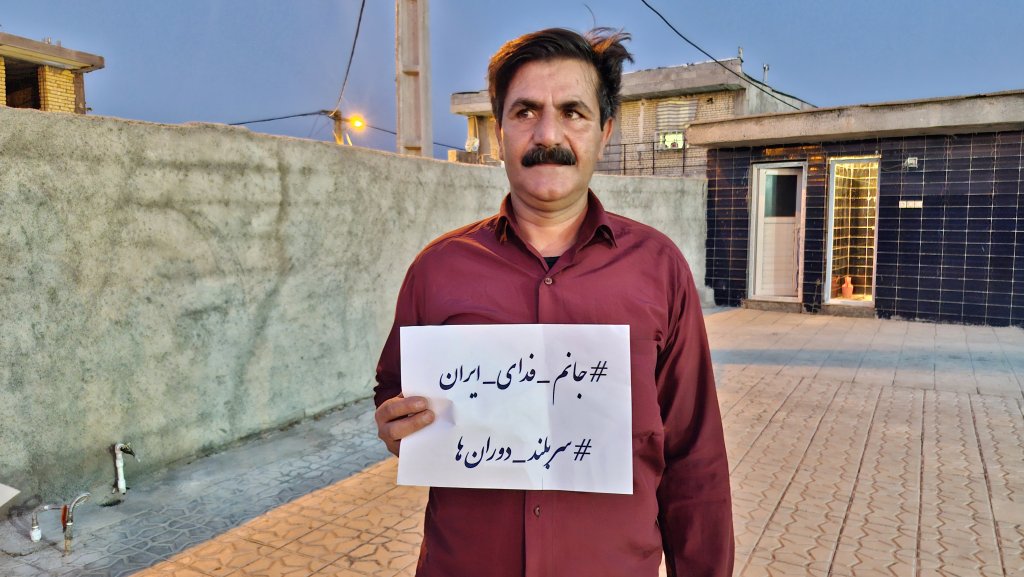 #جانم_فدای_ایران
#سربلند_دوران‌ها